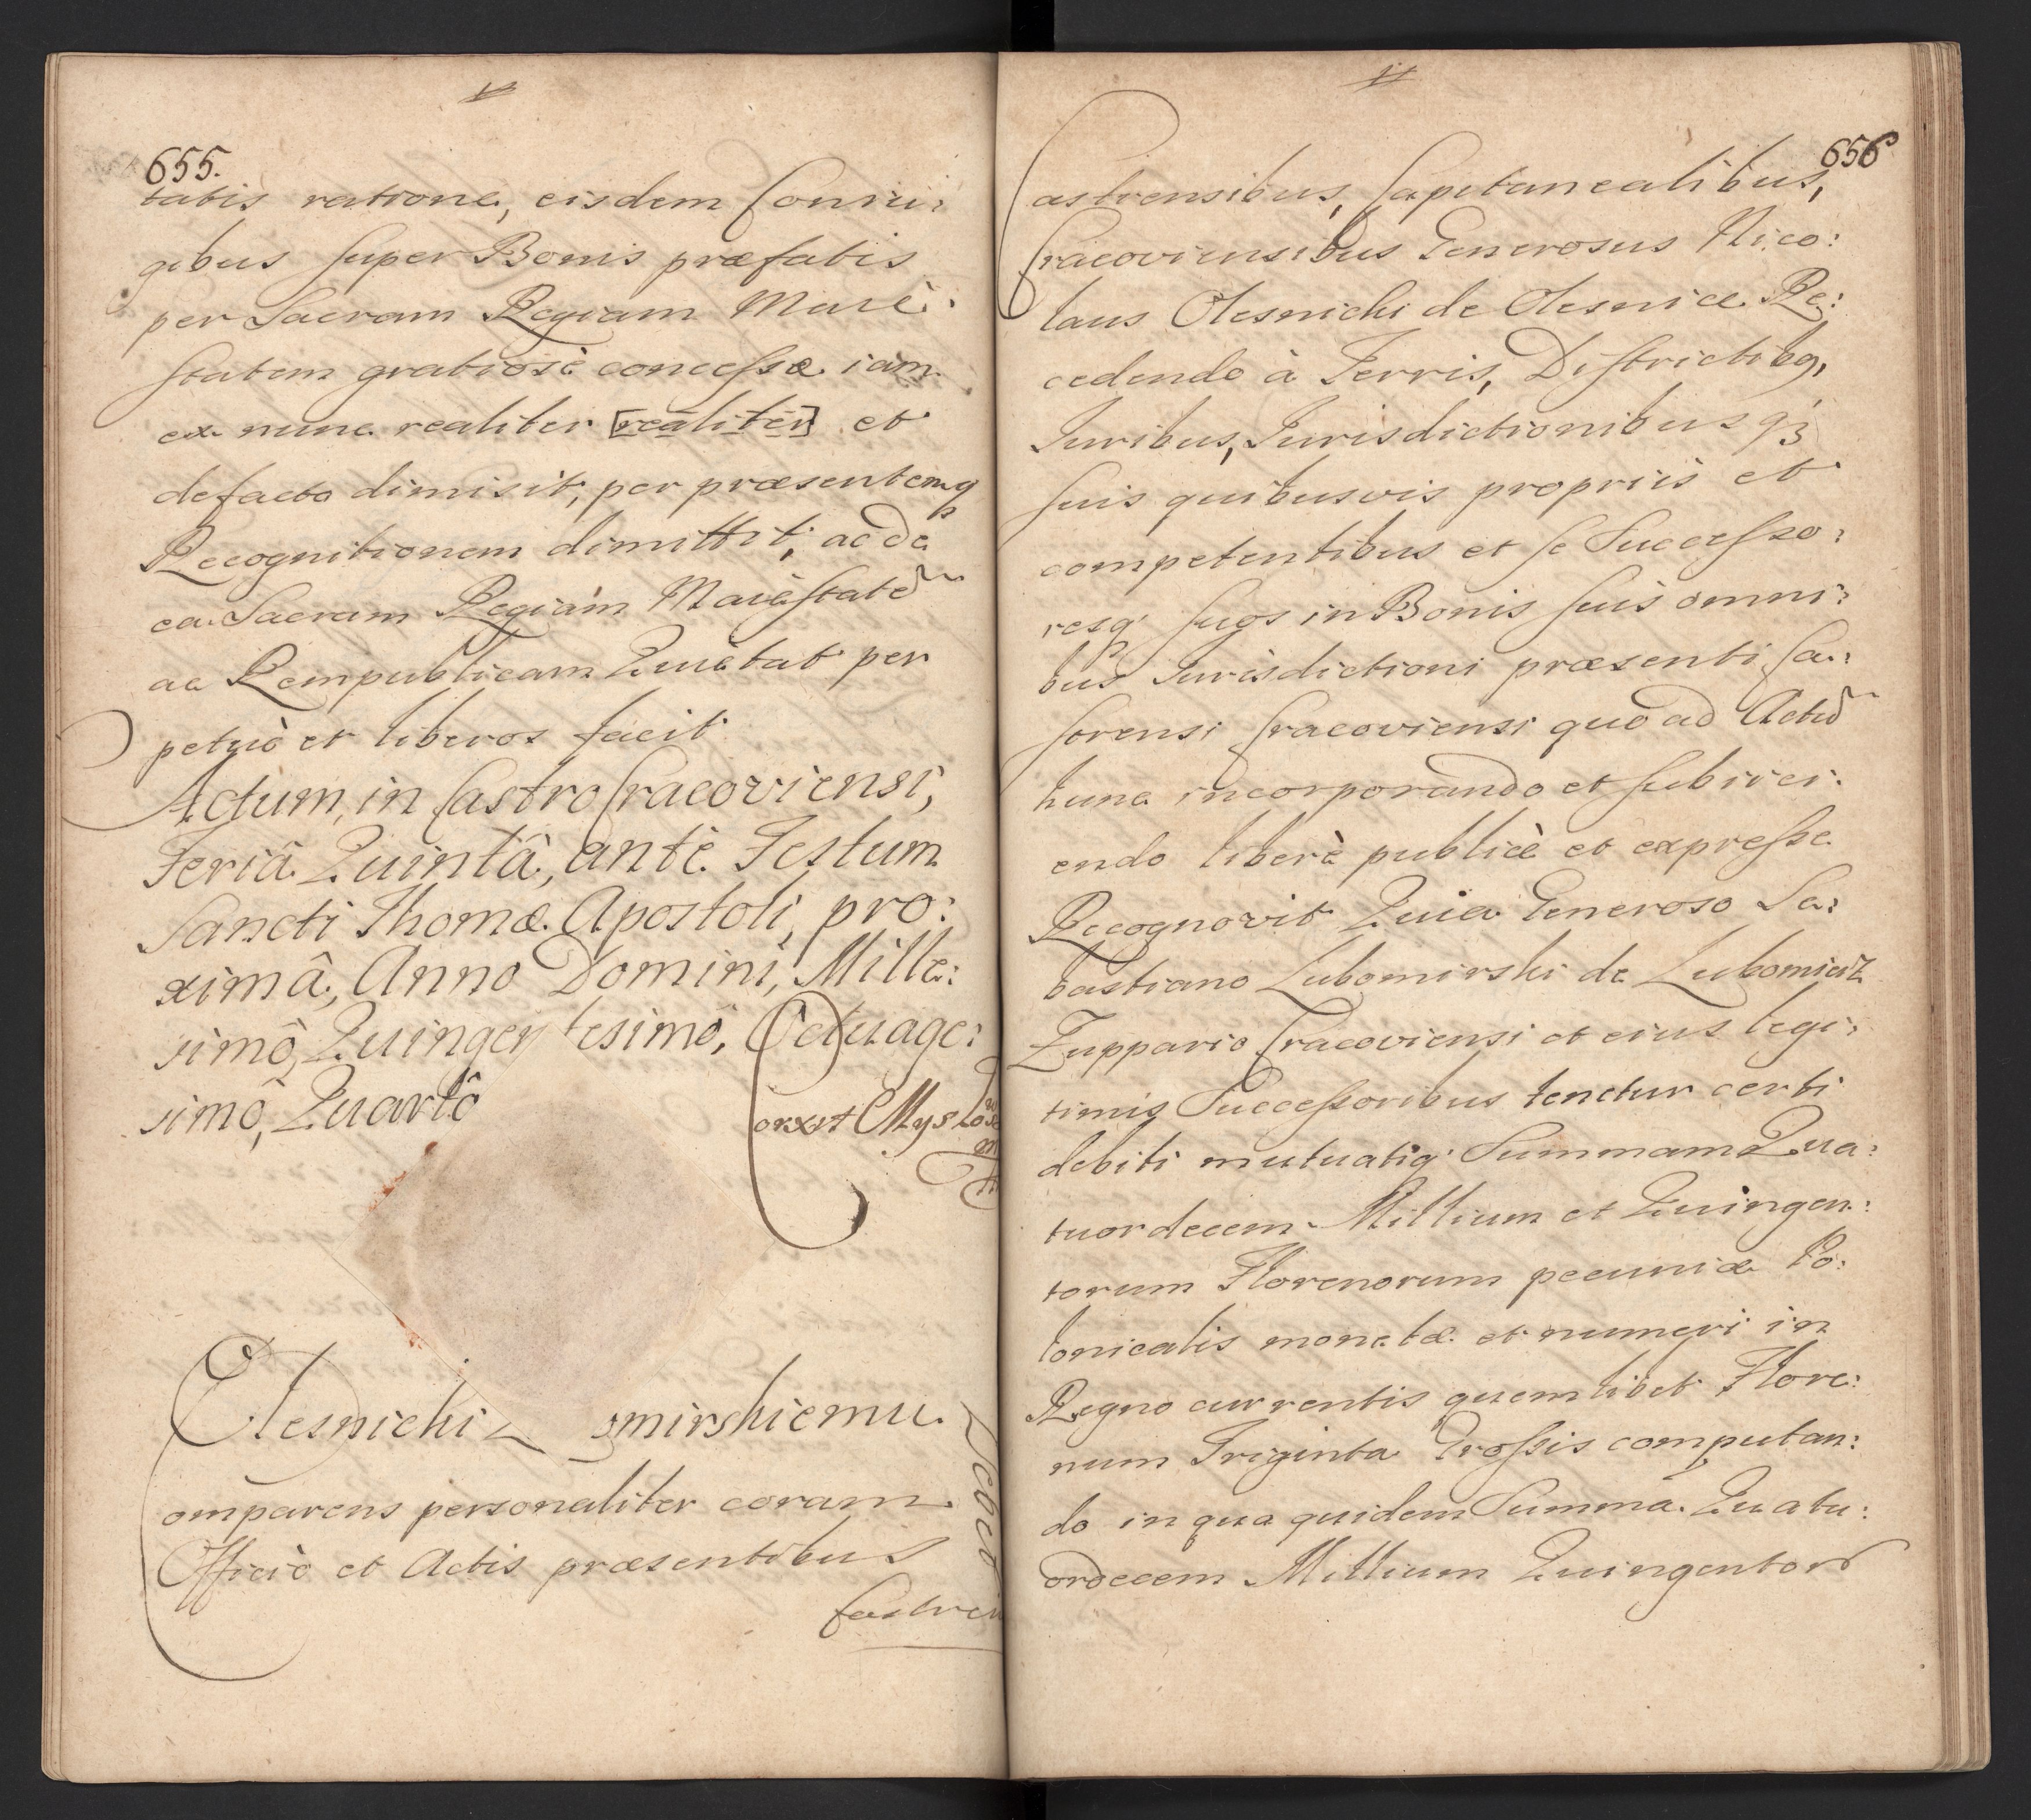 655.
tatis ratione, eisdem Coniu:
gibus super Bonis præfatis
per Sacram Regiam Maie:
statem gratiosè concessæ iam
ex nunc realiter [realiter] et
defacto dimisit, per præsentemq
Recognitionem dimittit, ac de
ea Sacram Regiam Maiestatē
ac Rempublicam Quietat per
petuò et liberos facit
Actum, in Castro Cracoviensi,
Feriâ Quintâ, antè Festum
Sancti Thomæ Apostoli, pro:
ximâ, Anno Domini, Mille:
simô, Quingentesimô, Octuage:
simô, Quartô
Corxit Mys
Olesnichi mirshiemu
Debet
omparens personaliter coram
Officiô et Actis præsentibus
Castren
656
Castrensibus, Capitanealibus,
Cracoviensibus Generosus Nico:
laus Olesnichi de Olesnice Re:
cedendo à Terris, Districtibq,
Iuribus, Iurisdictionibusqꝫ
suis quibusvis propriis et
competentibus et se Successo:
resq suos in Bonis suis omni:
bus Iurisdictioni præsenti Ca:
strensi Cracoviensi quo ad Actū
hunc incorporando et subiici:
endo liberè publicè et expresse
Recognovit Quia Generoso Se:
bastiano Lubomirshi de Lubomierz
Zuppario Cracoviensi et eius legi:
timis Successoribus tenetur certi
debiti mutuatiq Summam Qua:
tuordecem Millium et Quingen:
torum Florenorum pecuniæ Po:
lonicalis monetæ et numeri in
Regno currentis quemlibet Flore:
num Triginta Grossis computan:
do in qua quidem Summa Quatu:
ordecem Millium Quingentor